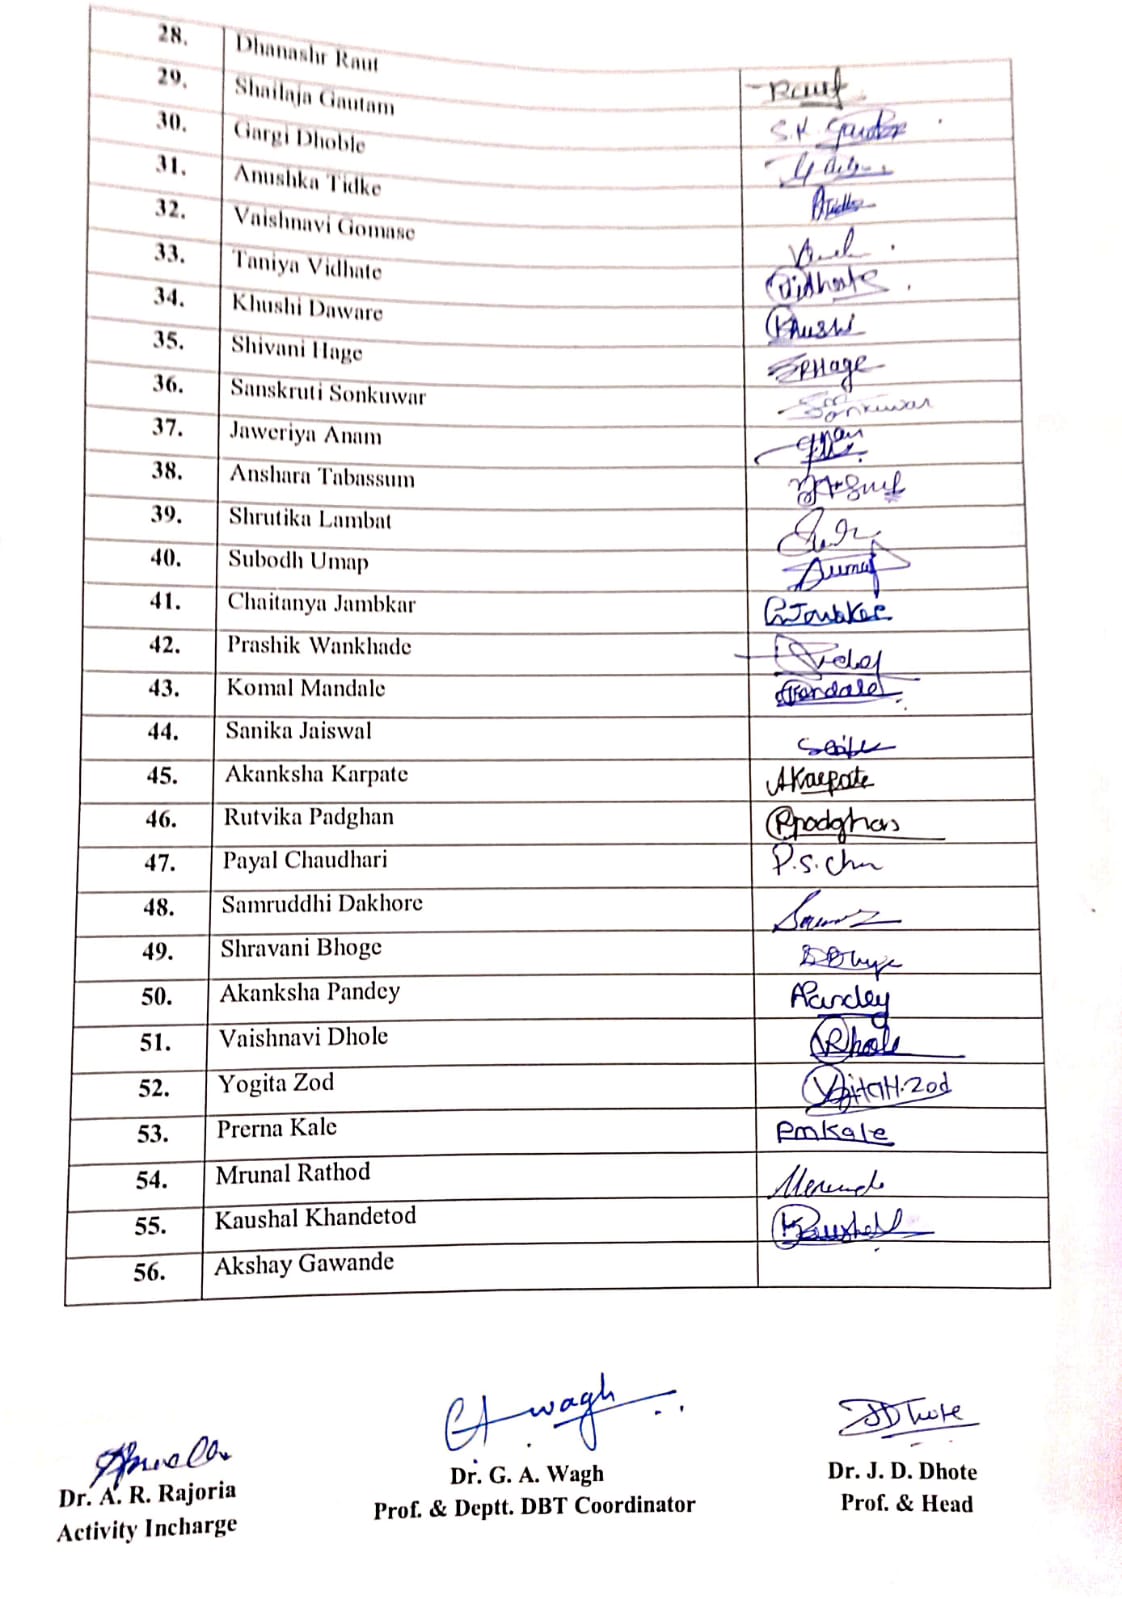 28. Dhanashr Raut Raut
29. Shailaja Gautam S.K. Gautam
30. Gargi Dhoble
31. Anushka Tidke
32. Vaishnavi Gomase
33. Taniya Vidhate Vidhate
34. Khushi Daware Khushi
35. Shivani Hage SPHage
36. Sanskruti Sonkuwar Sonkuwar
37. Jaweriya Anam
38. Anshara Tabassum
39. Shrutika Lambat
40. Subodh Umap
41. Chaitanya Jambkar
42. Prashik Wankhade
43. Komal Mandale
44. Sanika Jaiswal
45. Akanksha Karpate AKarpate
46. Rutvika Padghan
47. Payal Chaudhari P.S.Chu
48. Samruddhi Dakhore
49. Shravani Bhoge
50. Akanksha Pandey APandey
51. Vaishnavi Dhole
52. Yogita Zod
53. Prerna Kale PMKale
54. Mrunal Rathod
55. Kaushal Khandetod Kaushal
56. Akshay Gawande
GAWagh
JDDhote
Dr. A. R. Rajoria Dr. G. A. Wagh Dr. J. D. Dhote
Activity Incharge Prof. & Deptt. DBT Coordinator Prof. & Head